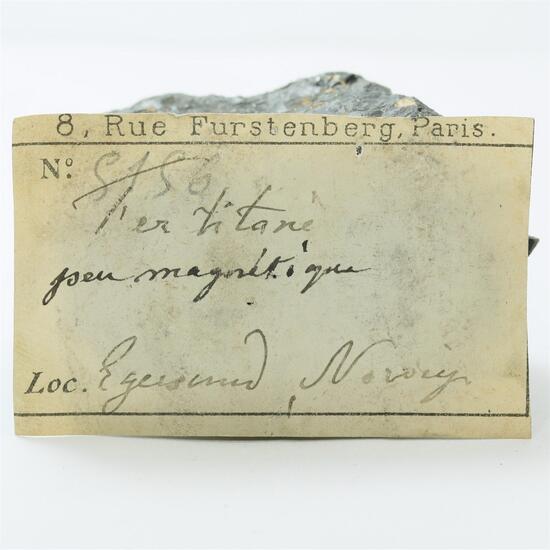 8, Rue Furstenberg, Paris.
No:
Fer titané
peu magnétique
Loc. Egersund, Norvège